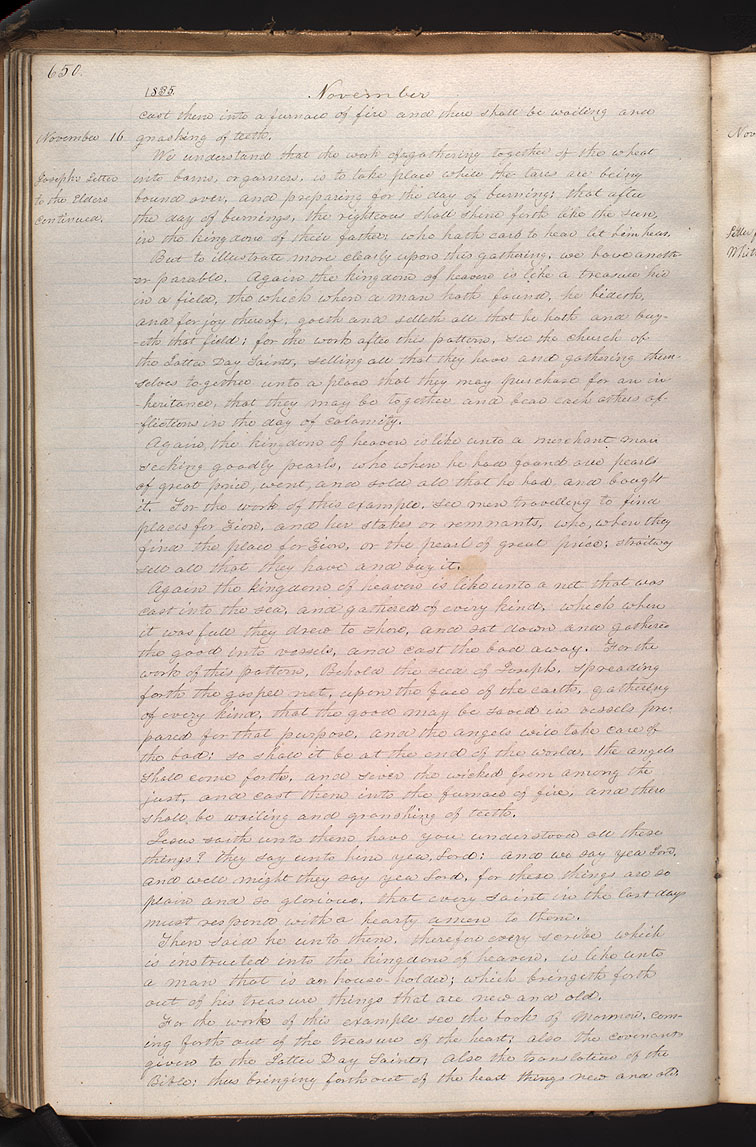 650.
1835.
November
cast them into a furnace of fire and there shall be wailing and
November 16
gnashing of teeth.
We understand that the work of gathering together of the wheat
Josephs Letter
into barns, or garners, is to take place while the tares are being
to the Elders
bound over, and preparing for the day of burning; that after
continued.
the day of burnings, the righteous shall shine forth like the sun,
in the kingdom of their father; who hath ears to hear let him hear.
But to illustrate more clearly upon this gathering, we have anoth-
er parable. Again the kingdom of heaven is like a treasure hid
in a field, the which when a man hath found, he hideth,
and for joy thereof, goeth and selleth all that he hath and buy-
-eth that field; for the work after this pattern, see the church of
the Latter Day Saints, selling all that they have and gathering them-
selves together unto a place that they may purchase for an in-
-heritance, that they may be together and bear each others af-
flictions in the day of calamity.
Again, the kingdom of heaven is like unto a merchant man
seeking goodly pearls, who when he had found one pearls
of great price, went and sold all that he had and bought
it. For the work of this example, see men travelling to find
places for Zion, and her stakes or remnants, who, when they
find the place for Zion, or the pearl of great price; straitway
sell all that they have and buy it.
Again the kingdom of heaven is like unto a net that was
cast into the sea, and gathered of every kind, which when
it was full they drew to shore, and sat down and gathered
the good into vessels, and cast the bad away. For the
work of this pattern, Behold the seed of Joseph, spreading
forth the gospel net, upon the face of the earth, gathering
of every kind, that the good may be saved in vessels pre-
pared for that purpose, and the angels will take care of
the bad: so shall it be at the end of the world, the angels
shall come forth, and sever the wicked from among the
just, and cast them into the furnace of fire, and there
shall be wailing and gnanshing of teeth.
Jesus saith unto them have you understood all these
things? they say unto him yea, Lord: and we say yea Lord,
and well might they say yea Lord, for these things are so
plain and so glorious, that every saint in the last days
must respond with a hearty amen to them.
Then said he unto them, therefore every scribe which
is instructed into the kingdom of heaven, is like unto
a man that is an house-holder; which bringeth forth
out of his treasure things that are new and old.
For the works of this example see the book of Mormon, com-
ing forth out of the treasure of the heart; also the covenants
given to the Latter Day Saints; also the translation of the
Bible: thus bringing forth out of the heart things new and old,